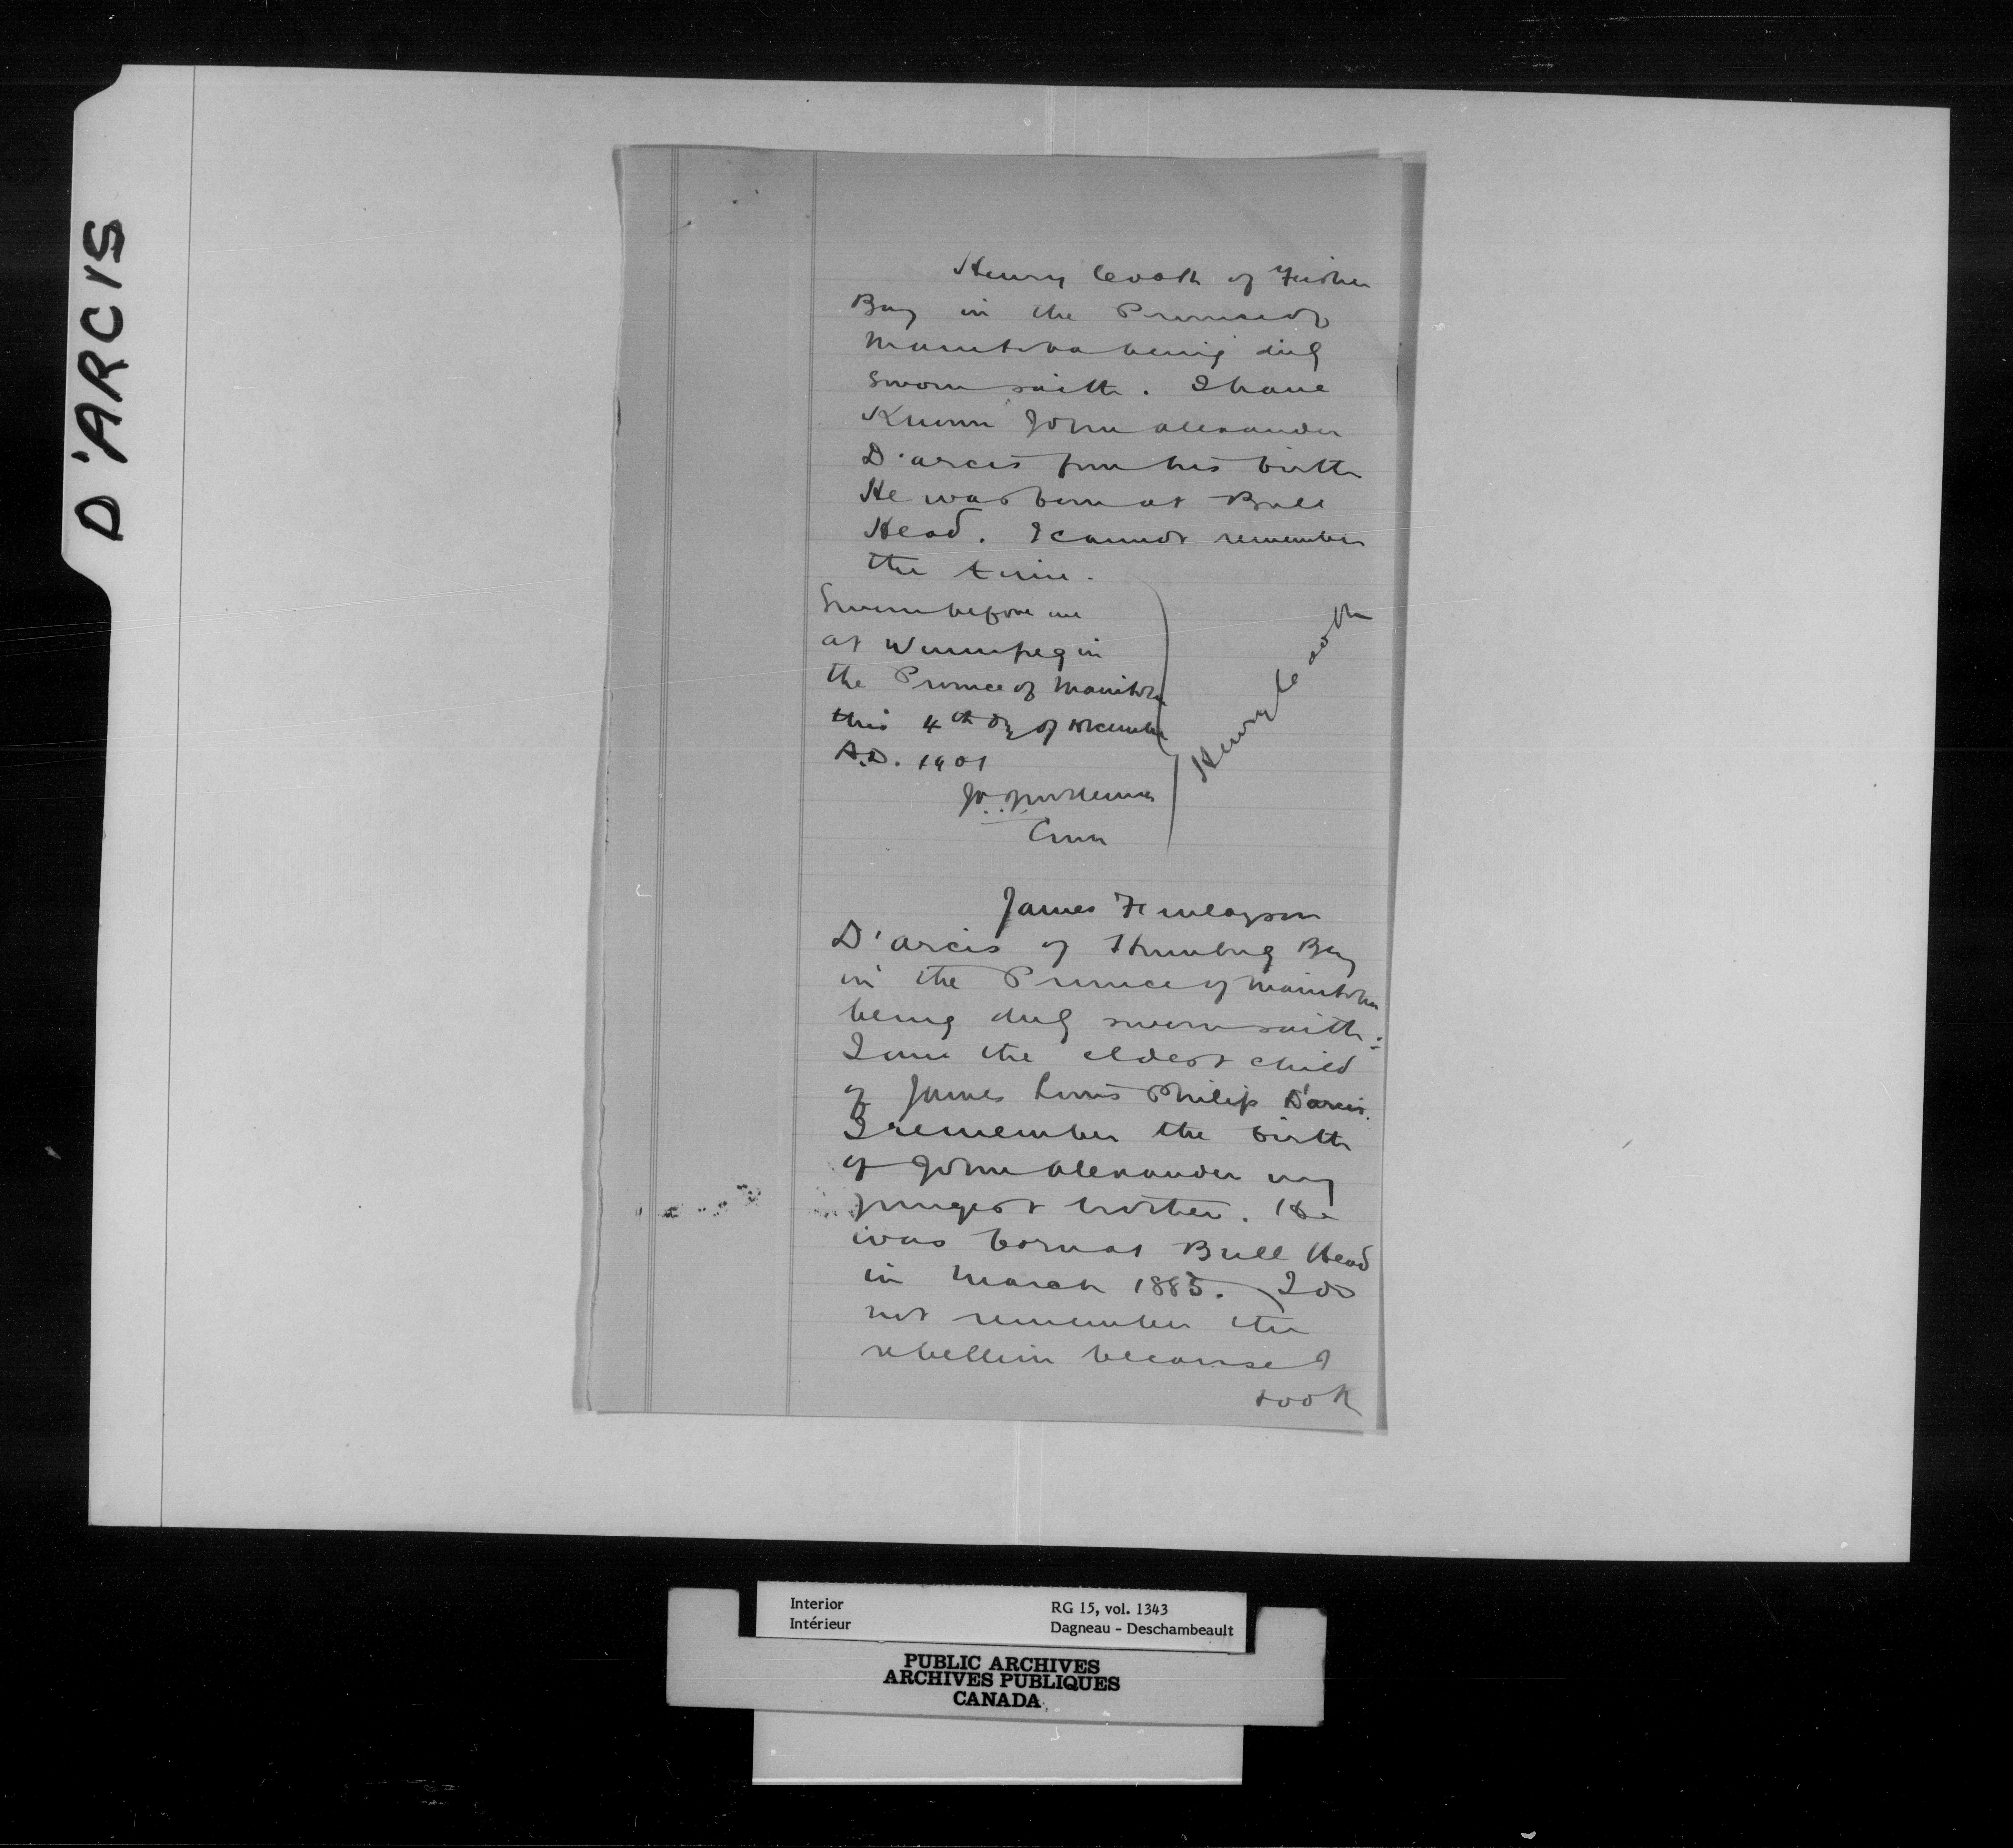 D'ARCIS
Henry Cook of Fisher
Bay in the Province of
Manitoba being duly
sworn saith. I have
Known John Alexander
D'arcis from his birth
He was born at Bull
Head. I cannot remember
the time.
Sworn before me
at Winnipeg in
the Province of Manitoba
this 4th day of December
A.D. 1901
Henry Cook
Comr
James Finlayson
D'arcis of Humbug Bay
in the Province of Manitoba
being duly sworn saith:
I am the eldest child
of James Louis Philip D'arcis.
I remember the birth
of John Alexander my
youngest brother. He
was born at Bull Head
in March 1885. I do
not remember the
rebellion because I
took
Interior
Intérieur
RG 15, vol. 1343
Dagneau - Deschambeault
PUBLIC ARCHIVES
ARCHIVES PUBLIQUES
CANADA